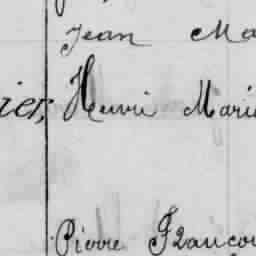 Jean Ma
ier, Henri Marie
Pierre Françou